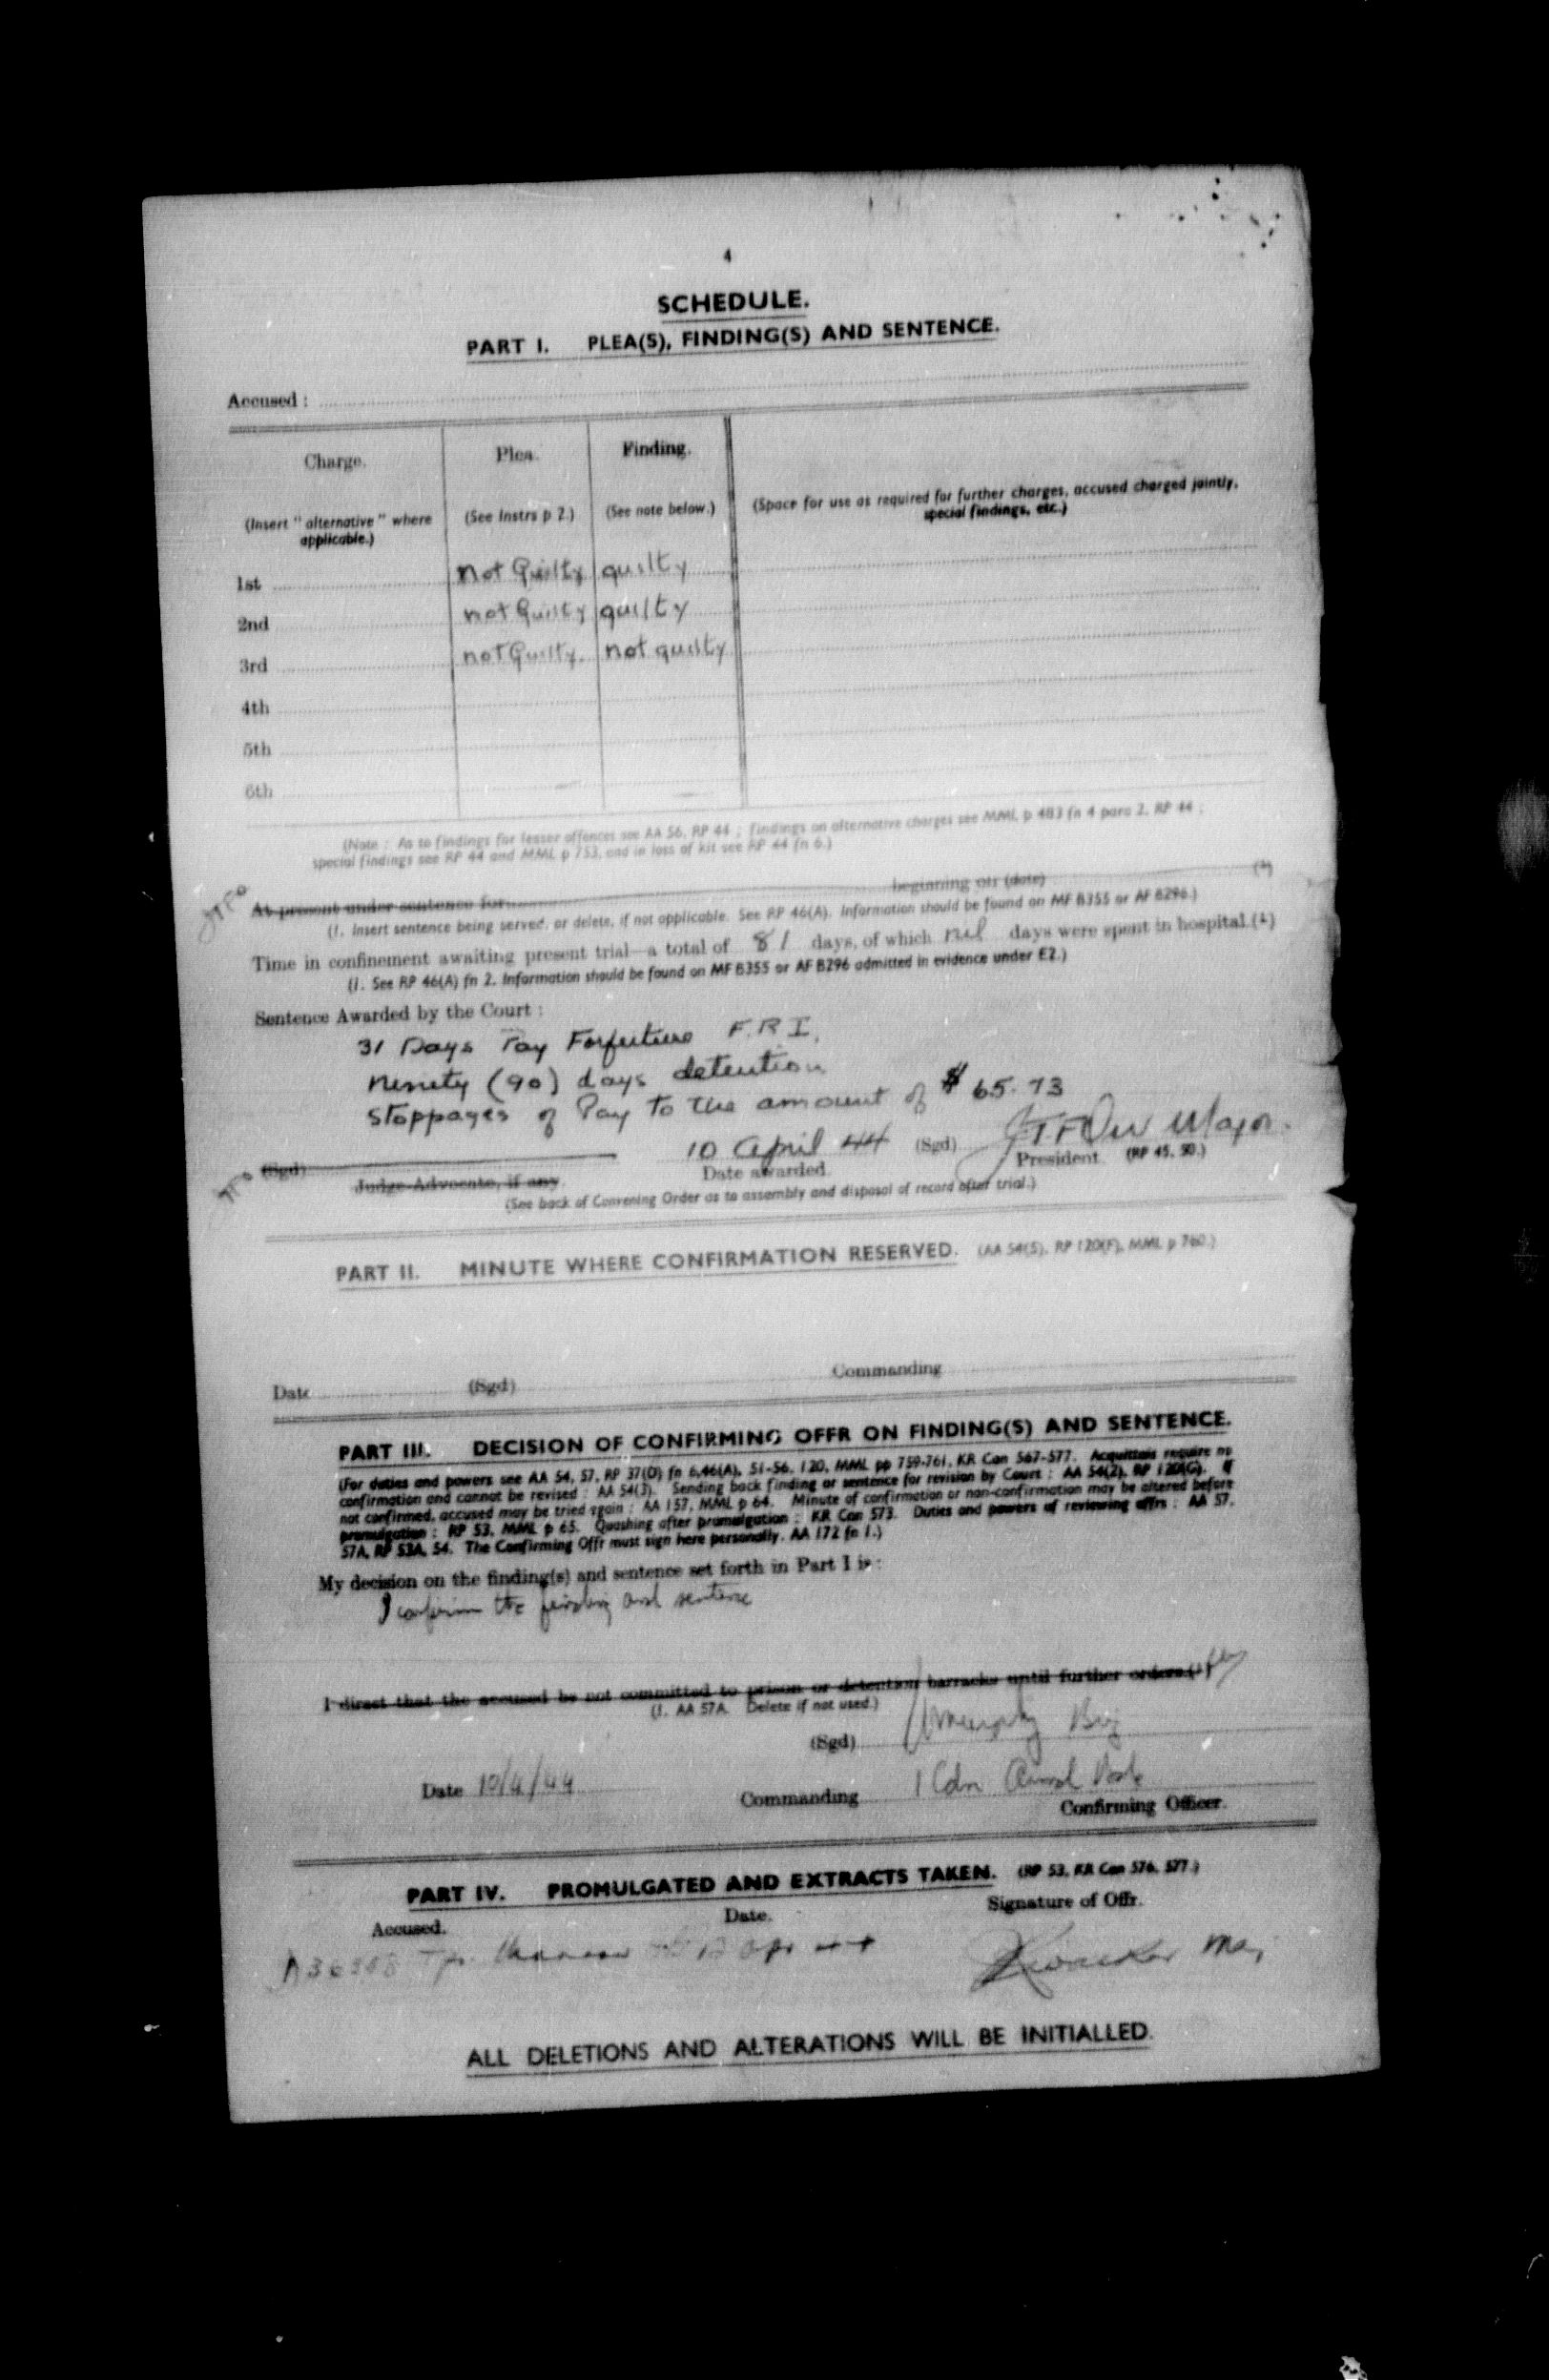 4
SCHEDULE.
PART I. PLEA(S), FINDING(S) AND SENTENCE.
Accused :
Charge. Plea. Finding.
(Insert " alternative " where applicable.) (See Instrs p 2.) (See note below.) (Space for use as required for further charges, accused charged jointly, special findings, etc.)
1st not Guilty guilty
2nd not Guilty guilty
3rd not Guilty. not guilty
4th
5th
6th
(Note : As to findings for lesser offences see AA 56, RP 44 ; findings on alternative charges see MML p 483 fn 4 para 2, RP 44 ;
special findings see RP 44 and MML p 753, and in loss of kit see RP 44 fn 6.)
At present under sentence for beginning on (date) (1)
(1. Insert sentence being served, or delete, if not applicable. See RP 46(A). Information should be found on MF B355 or AF B296.)
Time in confinement awaiting present trial—a total of 81 days, of which nil days were spent in hospital.(1)
(1. See RP 46(A) fn 2. Information should be found on MF B355 or AF B296 admitted in evidence under E2.)
Sentence Awarded by the Court :
31 Days Pay Forfeiture F.R.I.
Ninety (90) days detention
Stoppages of Pay to the amount of $ 65.73
10 April 44 (Sgd) Major.
(Sgd) Date awarded. President. (RP 45, 50.)
Judge-Advocate, if any.
(See back of Convening Order as to assembly and disposal of record after trial.)
PART II. MINUTE WHERE CONFIRMATION RESERVED. (AA 54(5), RP 120(F), MML p 760.)
Date (Sgd) Commanding
PART III. DECISION OF CONFIRMING OFFR ON FINDING(S) AND SENTENCE.
(For duties and powers see AA 54, 57, RP 37(D) fn 6,46(A), 51-56, 120, MML pp 759-761, KR Can 567-577. Acquittals require no
confirmation and cannot be revised : AA 54(3). Sending back finding or sentence for revision by Court : AA 54(2), RP 120(G). If
not confirmed, accused may be tried again : AA 157, MML p 64. Minute of confirmation or non-confirmation may be altered before
promulgation : RP 53, MML p 65. Quashing after promulgation : KR Can 573. Duties and powers of reviewing offrs : AA 57,
57A, RP 53A, 54. The Confirming Offr must sign here personally, AA 172 fn 1.)
My decision on the finding(s) and sentence set forth in Part I is :
I confirm the finding and sentence
I direct that the accused be not committed to prison or detention barracks until further orders.(1)
(1. AA 57A. Delete if not used.)
(Sgd) Murphy Brig
Date 10/4/44 Commanding 1 Cdn Armd
Confirming Officer.
PART IV. PROMULGATED AND EXTRACTS TAKEN. (RP 53, KR Can 576, 577.)
Accused. Date. Signature of Offr.
Tpr. Apr 44 Maj
ALL DELETIONS AND ALTERATIONS WILL BE INITIALLED.